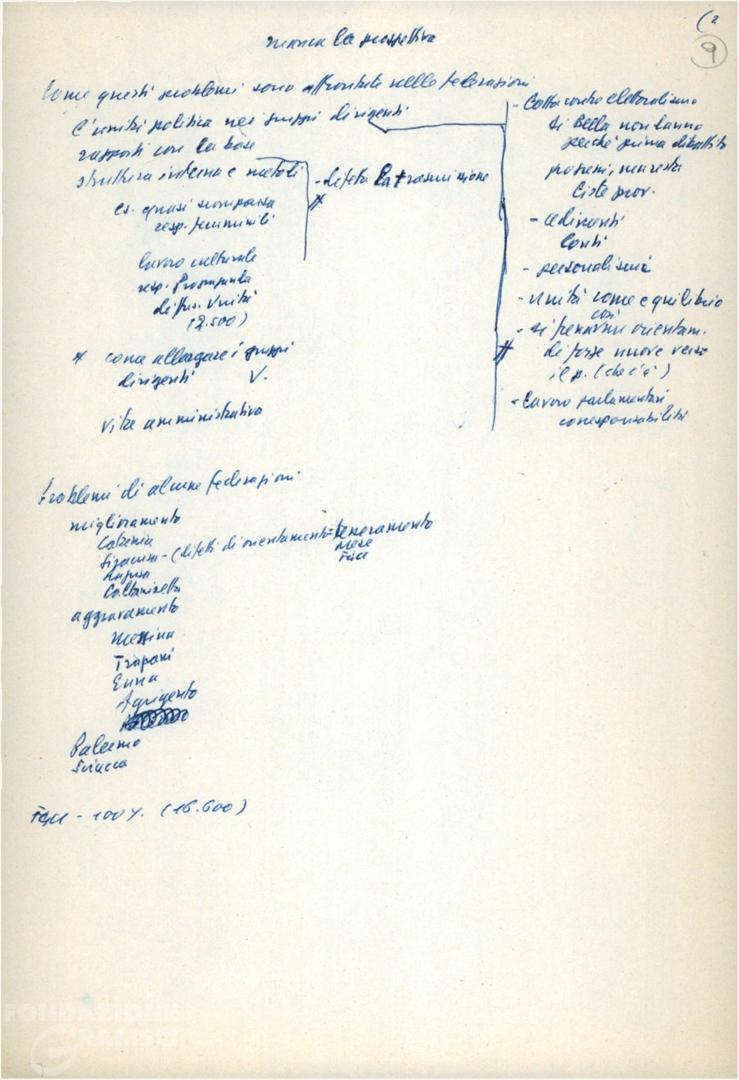 (2
9
manca la prospettiva
Come questi problemi sono affrontati nelle federazioni
L'unità politica nei gruppi dirigenti
rapporti con la base
struttura interna e metodi
es. quasi scomparsa
resp. femminili
lavoro culturale
resp. Propaganda
diffus. Unità
(2.500)
* come allargare i gruppi
dirigenti V.
vita amministrativa
- difetta la trasmissione
#
- Lotta contro elettoralismo
di Bella non vanno
perché prima dibattito
liste prov.
- cedimenti
Conti
- personalismi
- unità come equilibrio
così
- si frenano orientam.
# di forze nuove verso
il p. (che c'è)
- lavoro parlamentari
corresponsabilità
Problemi di alcune federazioni
miglioramento
Catania
Siracusa - (difetti di orientamento - tesseramento
Ragusa
Caltanissetta
aggravamento
Messina
Trapani
Enna
Agrigento
Palermo
Sciacca
FGCI - 100%. (16.600)
FONDAZIONE
GRAMSCI